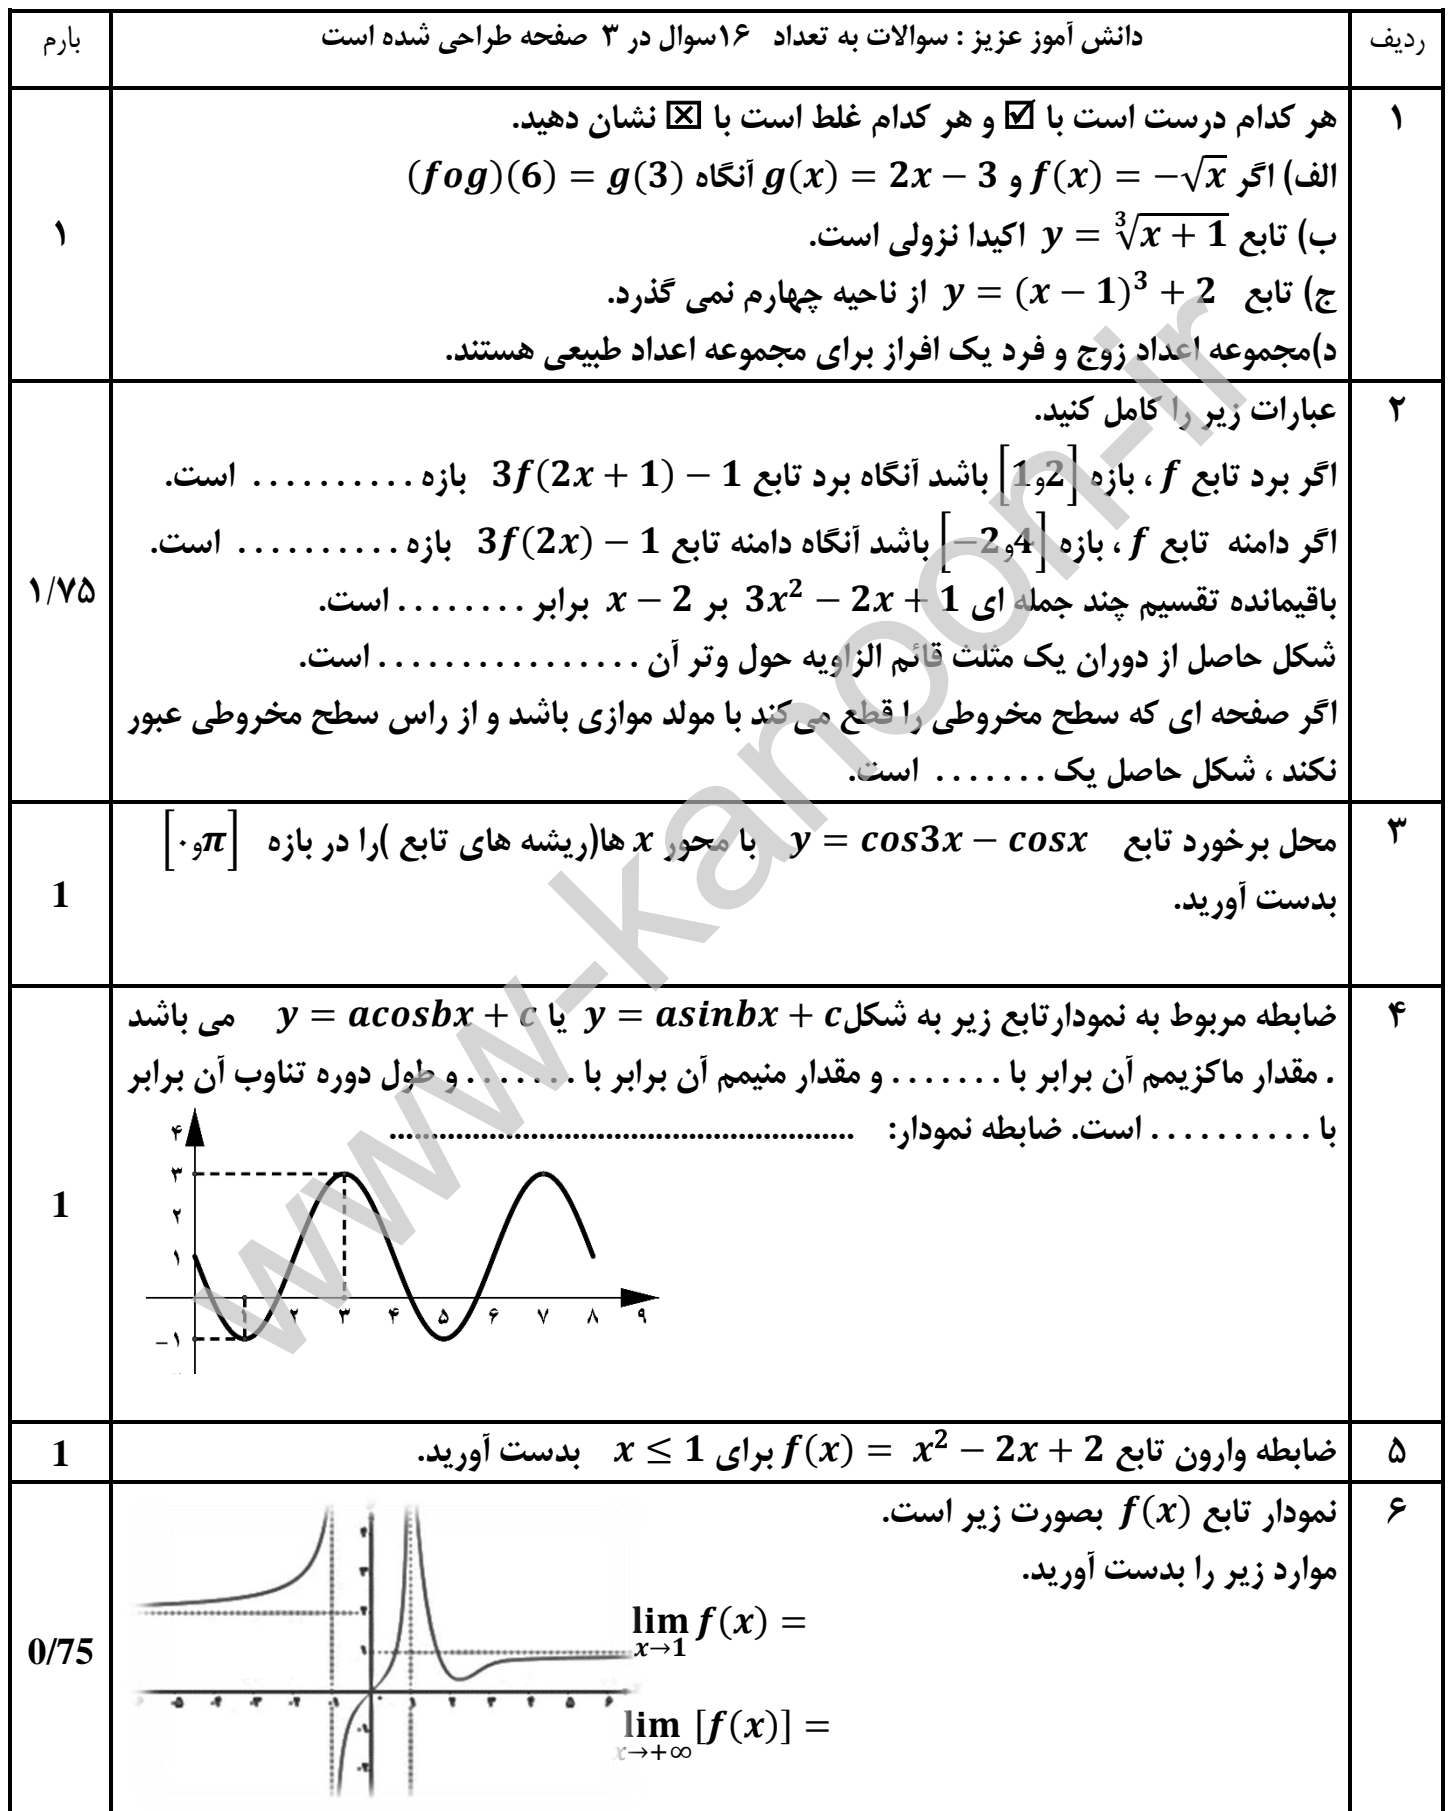 ردیف
دانش آموز عزیز : سوالات به تعداد ۱۶سوال در ۳ صفحه طراحی شده است
بارم
۱
هر کدام درست است با ☑ و هر کدام غلط است با ☒ نشان دهید.
الف) اگر f(x) = −√x و g(x) = 2x − 3 آنگاه (fog)(6) = g(3)
ب) تابع y = ∛(x + 1) اکیدا نزولی است.
ج) تابع y = (x − 1)³ + 2 از ناحیه چهارم نمی گذرد.
د)مجموعه اعداد زوج و فرد یک افراز برای مجموعه اعداد طبیعی هستند.
۱
۲
عبارات زیر را کامل کنید.
اگر برد تابع f ، بازه [1و2] باشد آنگاه برد تابع 3f(2x + 1) − 1 بازه . . . . . . . . . . است.
اگر دامنه تابع f ، بازه [−2و4] باشد آنگاه دامنه تابع 3f(2x) − 1 بازه . . . . . . . . . . است.
باقیمانده تقسیم چند جمله ای 3x² − 2x + 1 بر x − 2 برابر . . . . . . . . است.
شکل حاصل از دوران یک مثلث قائم الزاویه حول وتر آن . . . . . . . . . . . . . . . . است.
اگر صفحه ای که سطح مخروطی را قطع می‌کند با مولد موازی باشد و از راس سطح مخروطی عبور
نکند ، شکل حاصل یک . . . . . . . است.
۱/۷۵
۳
محل برخورد تابع y = cos3x − cosx با محور x ها(ریشه های تابع )را در بازه [۰وπ]
بدست آورید.
1
۴
ضابطه مربوط به نمودارتابع زیر به شکلy = asinbx + c یا y = acosbx + c می باشد
. مقدار ماکزیمم آن برابر با . . . . . . . و مقدار منیمم آن برابر با . . . . . . . و طول دوره تناوب آن برابر
با . . . . . . . . . . است. ضابطه نمودار: ........................................................
۴
۳
۲
۱
−۱
۱ ۲ ۳ ۴ ۵ ۶ ۷ ۸ ۹
1
۵
ضابطه وارون تابع f(x) = x² − 2x + 2 برای x ≤ 1 بدست آورید.
1
۶
نمودار تابع f(x) بصورت زیر است.
موارد زیر را بدست آورید.
lim x→1 f(x) =
lim x→+∞ [f(x)] =
0/75
www-kanoon-ir